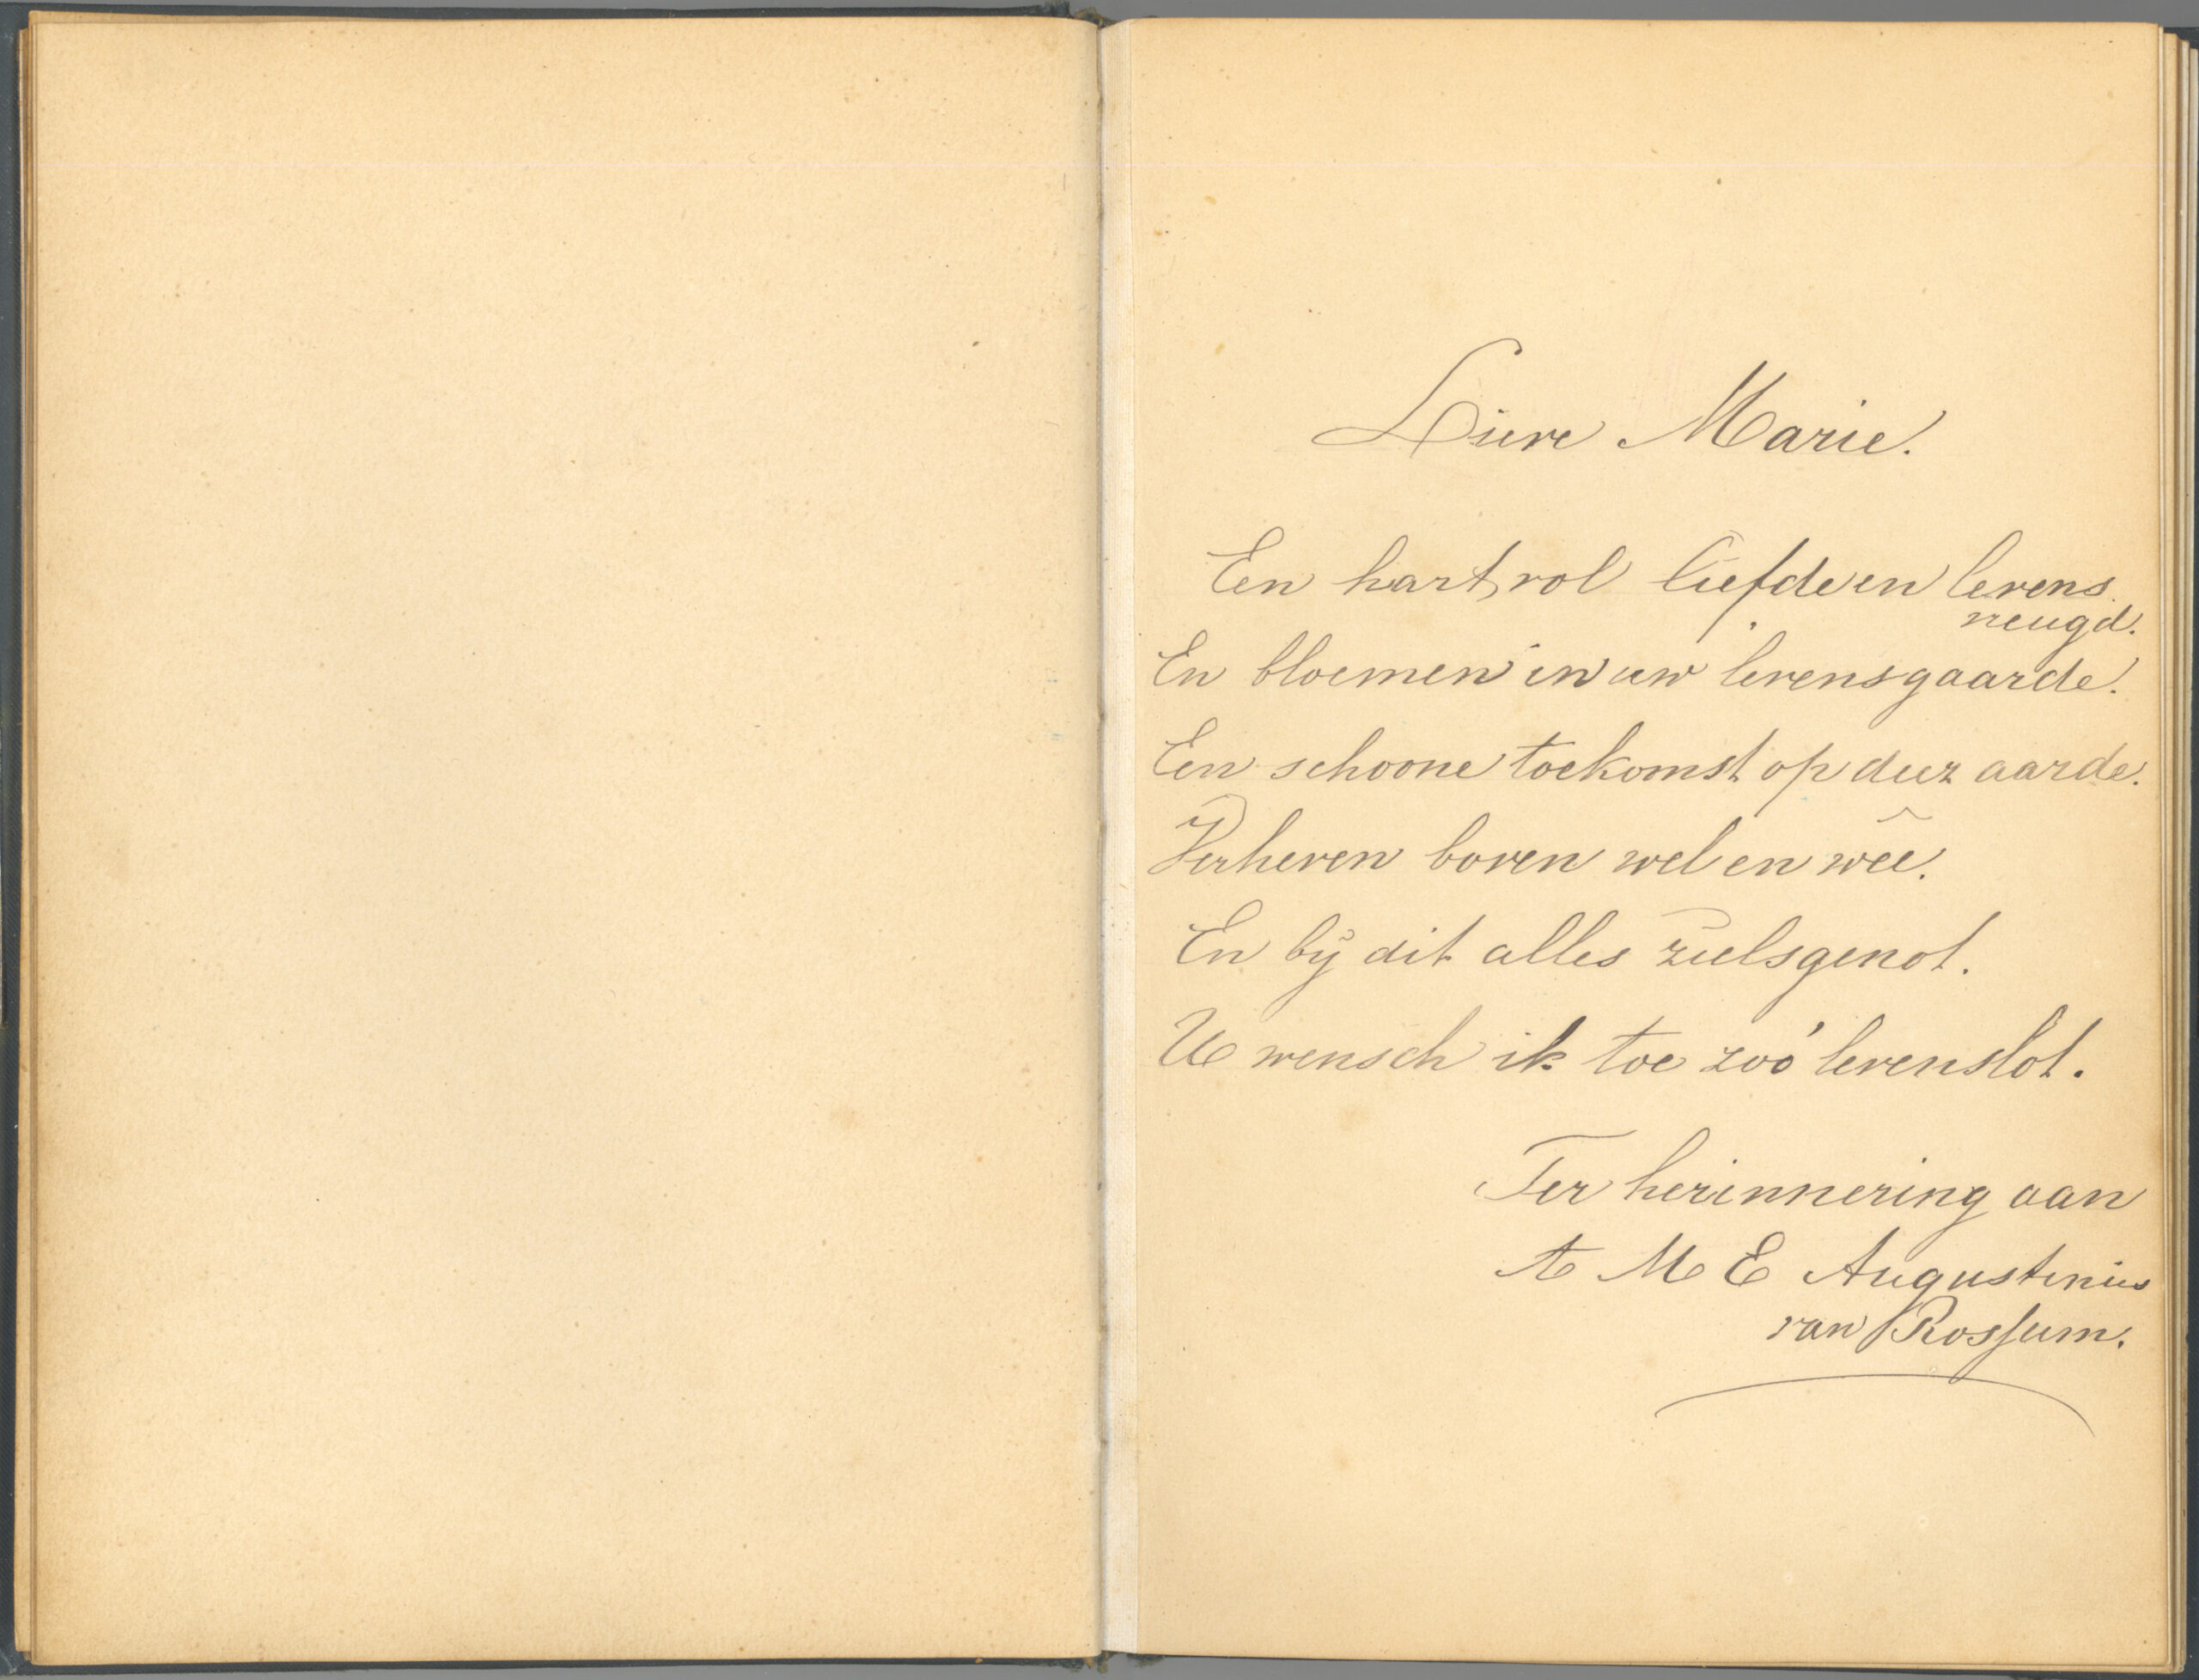 Lieve Marie.
Een hart vol liefde en levens
vreugd.
En bloemen in uw levensgaarde.
Een schoone toekomst op deez aarde.
Verheven boven wel en wee.
En bij dit alles zielsgenot.
U wensch ik toe zoo' levenslot.
Ter herinnering aan
A M E Augustinus
van Rossum.